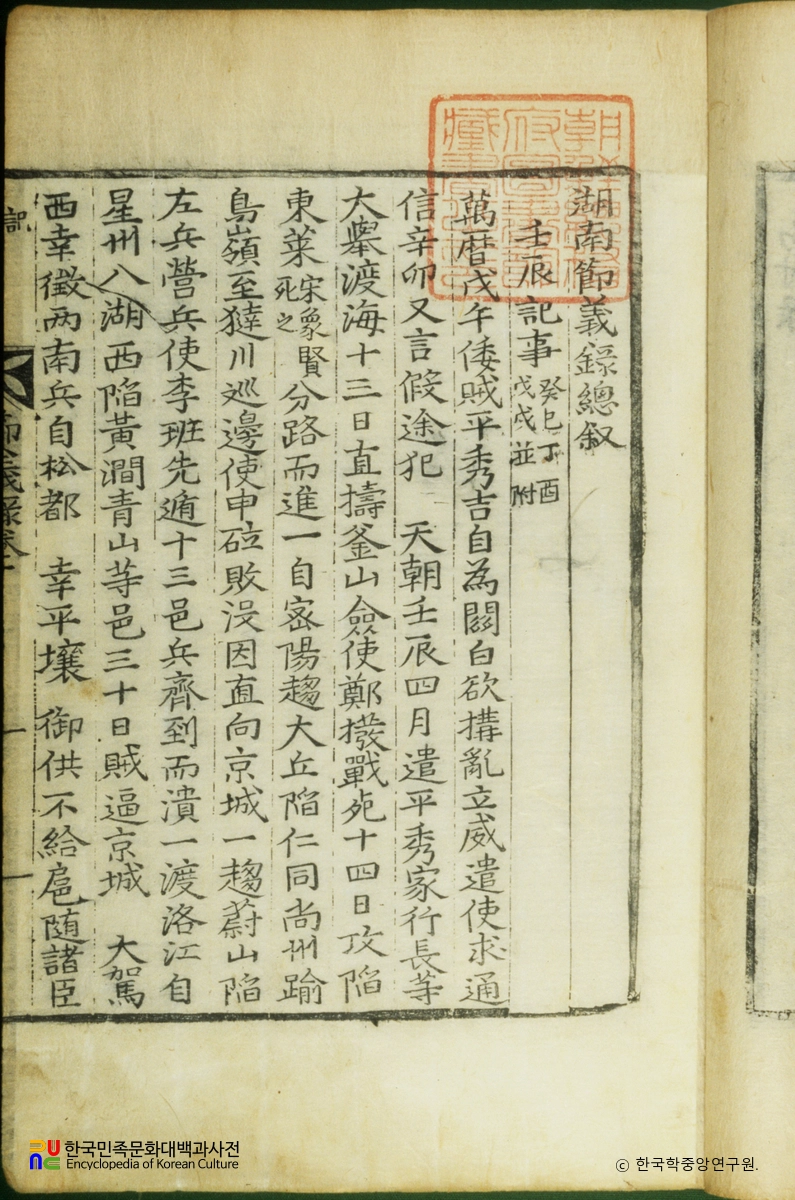 湖南節義錄總叙
壬辰記事 癸巳丁酉戊戌並附
萬曆戊午倭賊平秀吉自為關白欲搆亂立威遣使求通
信辛卯又言假途犯 天朝壬辰四月遣平秀家行長等
大擧渡海十三日直擣釜山僉使鄭撥戰死十四日攻陷
東萊宋象賢死之分路而進一自密陽趨大丘陷仁同尚州踰
鳥嶺至㺚川巡邊使申砬敗沒因直向京城一趨蔚山陷
左兵營兵使李珏先遁十三邑兵齊到而潰一渡洛江自
星州入湖西陷黃澗青山等邑三十日賊逼京城 大駕
西幸徵兩南兵自松都 幸平壤 御供不給扈隨諸臣
節義錄卷
한국민족문화대백과사전
Encyclopedia of Korean Culture
© 한국학중앙연구원.